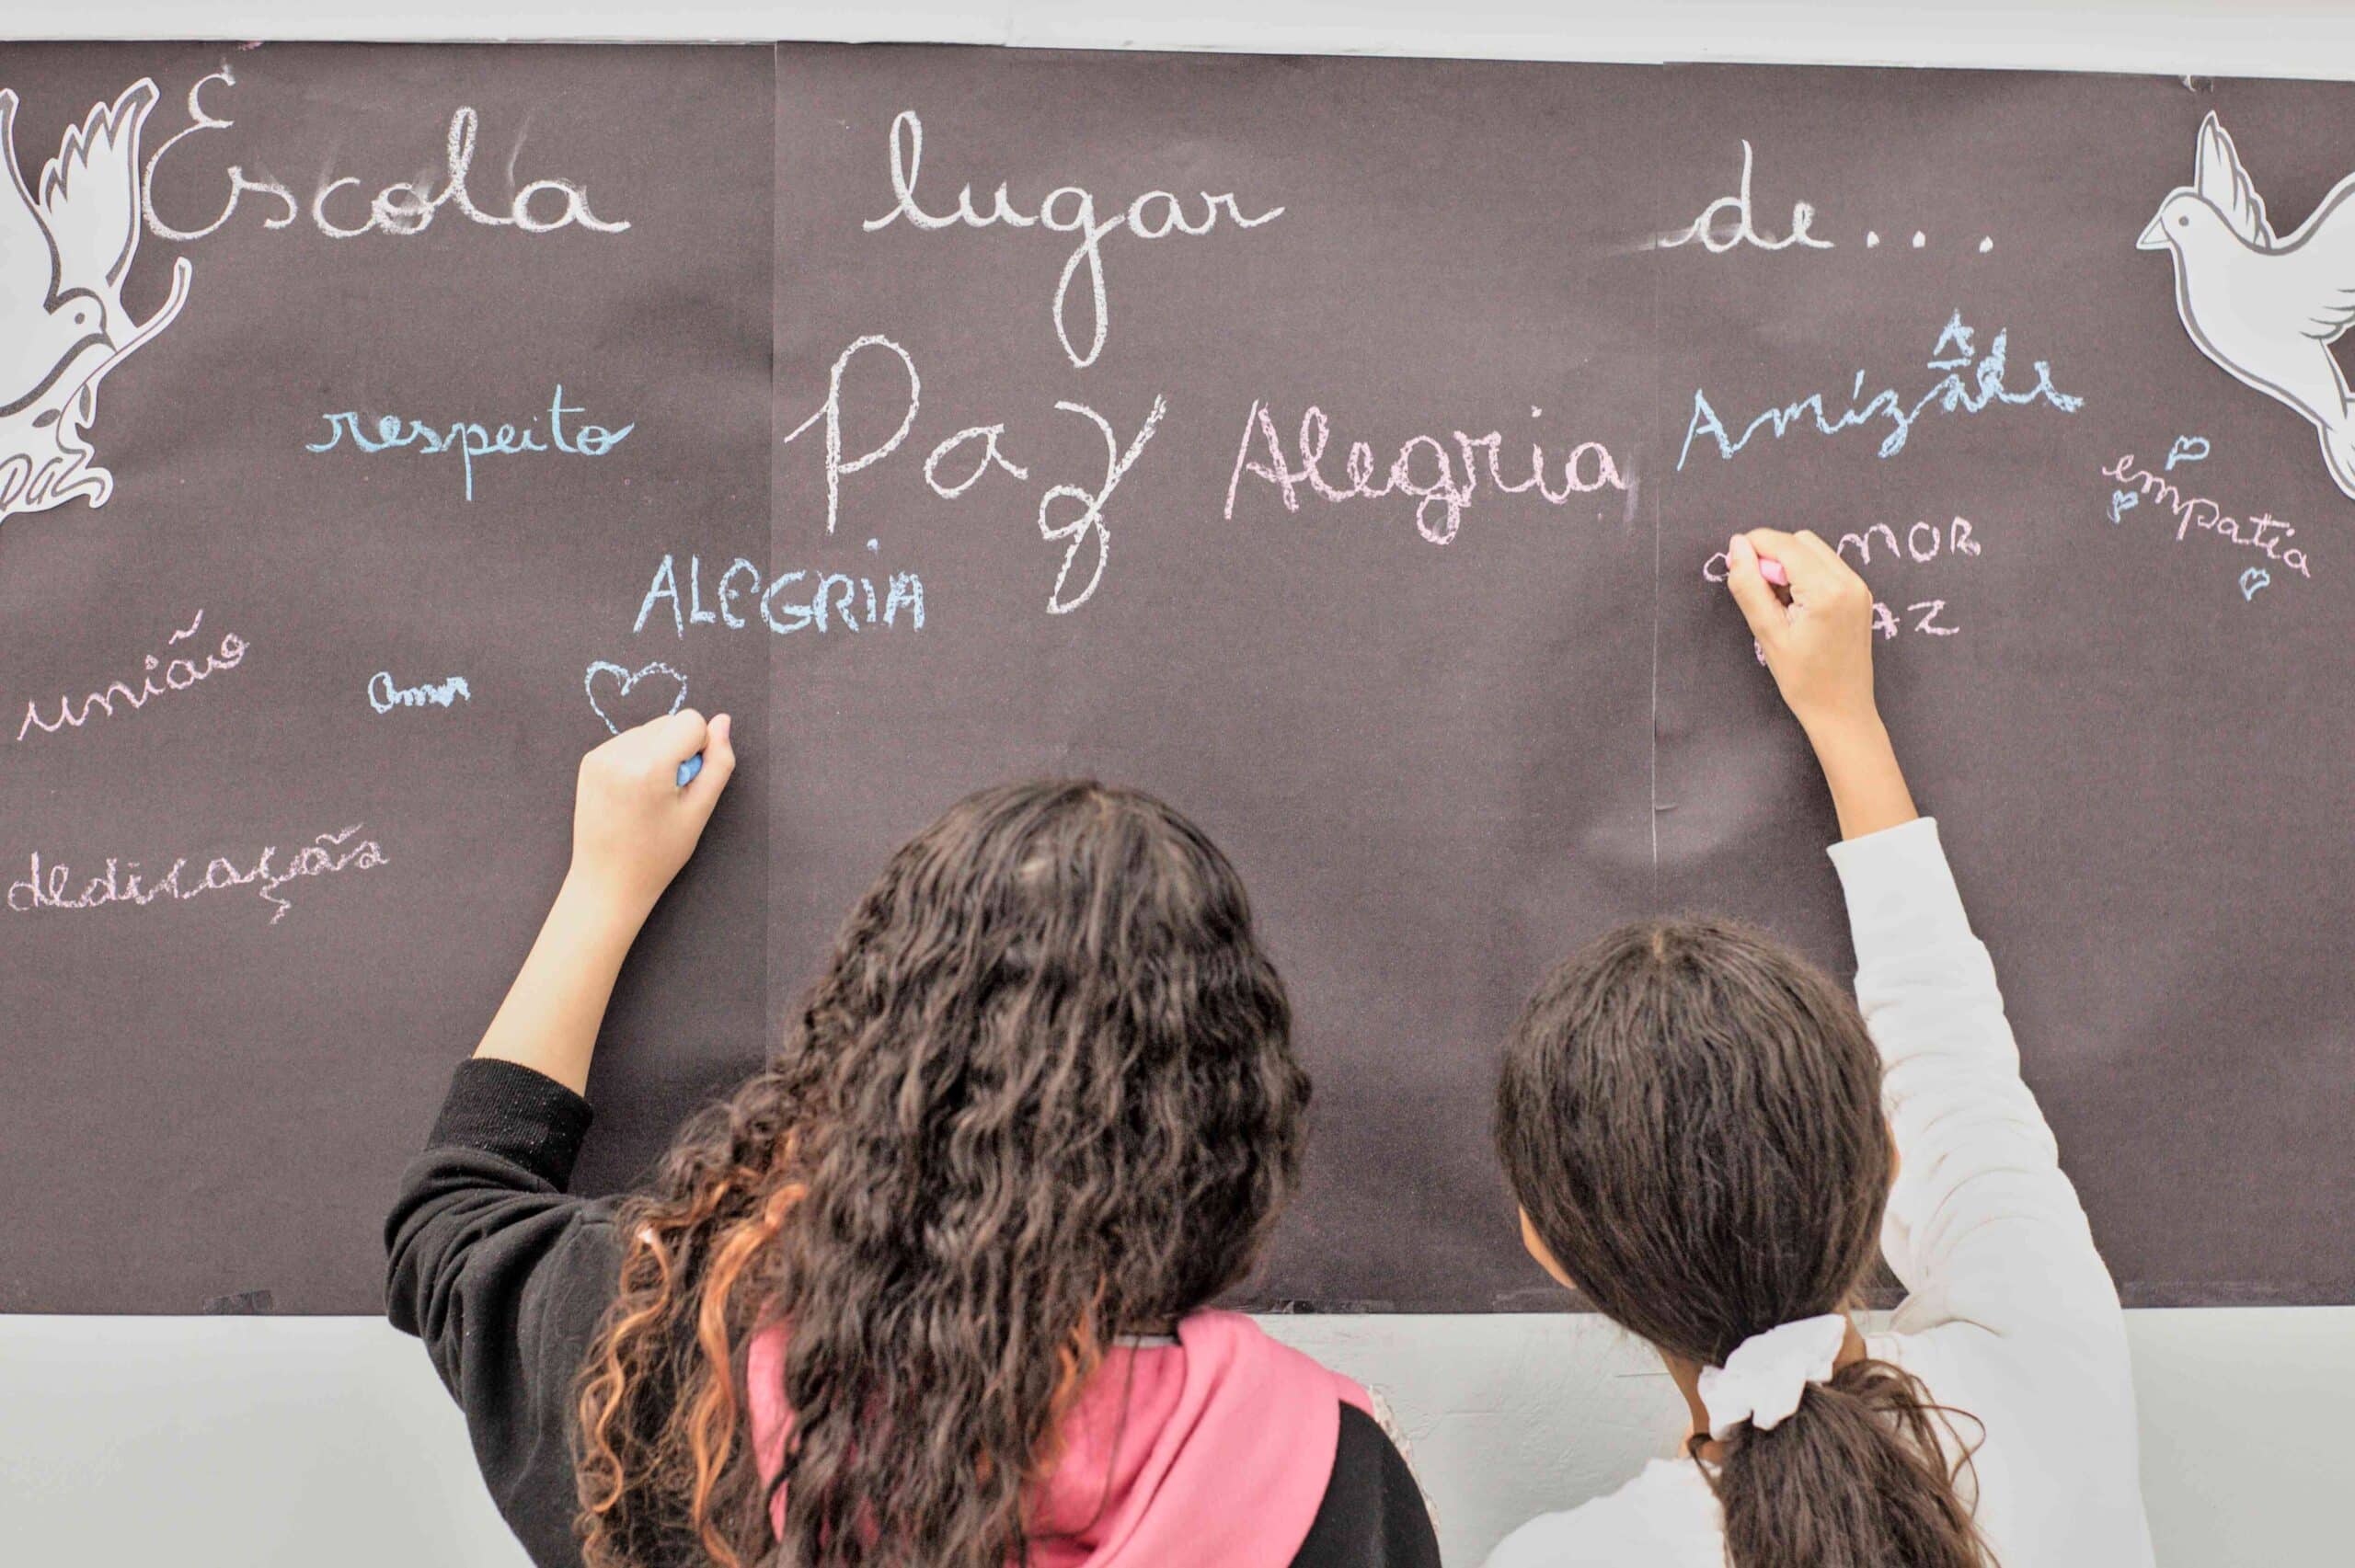 Escola lugar de...
respeito Paz Alegria Amizade
empatia
ALEGRIA
amor
união amor
dedicação
paz